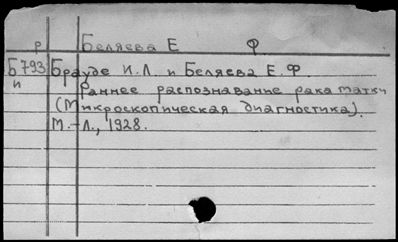 р Беляева Е Ф
Б793 Брауде И.Л. и Беляева Е.Ф.
и Раннее распознавание рака матки
(Микроскопическая диагностика).
М.-Л., 1928.